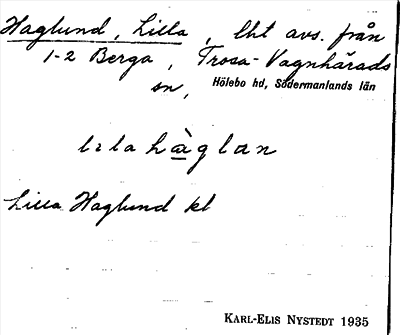 Haglund, Lilla, lht avs. från
1-2 Berga, Trosa-Vagnhärads
sn, Hölebo hd, Södermanlands län
lɩla hàglan
Lilla Haglund kl
KARL-ELIS NYSTEDT 1935